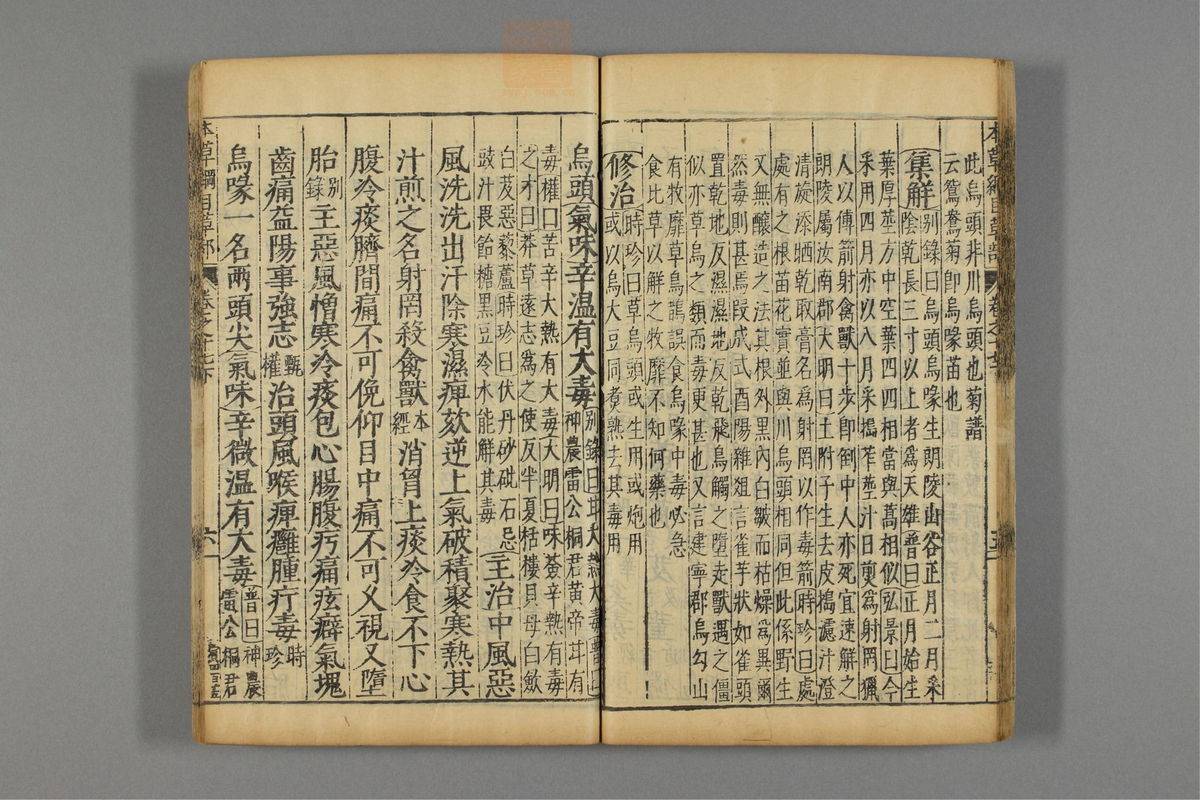 此烏頭非川烏頭也菊譜
云鴛鴦菊即烏喙苗也
集解别錄曰烏頭烏喙生朗陵山谷正月二月采
陰乾長三寸以上者爲天雄普曰正月始生
葉厚莖方中空葉四四相當與蒿相似弘景曰今
采用四月亦以八月采搗笮莖汁日煎爲射罔獵
人以傅箭射禽獸十步即倒中人亦死宜速解之
朗陵屬汝南郡大明曰土附子生去皮搗濾汁澄
清旋添晒乾取膏名爲射罔以作毒箭時珍曰處
處有之根苗花實並與川烏頭相同但此係野生
又無釀造之法其根外黒內白皺而枯燥爲異爾
然毒則甚焉段成式酉陽雜俎言雀芋狀如雀頭
置乾地反濕濕地反乾飛鳥觸之墮走獸遇之僵
似亦草烏之類而毒更甚也又言建寧郡烏勾山
有牧靡草鳥鵲誤食烏喙中毒必急
食牧靡以解之牧靡不知何藥也
修治時珍曰草烏頭或生用或炮用
或以烏大豆同煮熟去其毒用
烏頭氣味辛溫有大毒别錄曰
神農雷公桐君黃帝甘有
毒權曰苦辛大熱有大毒大明曰味薟辛熱有毒
之才曰莽草遠志爲之使反半夏栝樓貝母白斂
白芨惡藜蘆時珍曰伏丹砂砒石忌
豉汁畏飴糖黒豆冷水能解其毒
主治中風惡
風洗洗出汗除寒濕痺欬逆上氣破積聚寒熱其
汁煎之名射罔殺禽獸本經消胷上痰冷食不下心
腹冷痰臍間痛不可俛仰目中痛不可乂視又墮
胎别錄主惡風憎寒冷痰包心腸腹㽲痛痃癖氣塊
齒痛益陽事強志甄權治頭風喉痺癰腫疔毒時珍
烏喙一名兩頭尖氣味辛微溫有大毒普曰神農
雷公桐君
本草綱目草部
卷之十七下
六